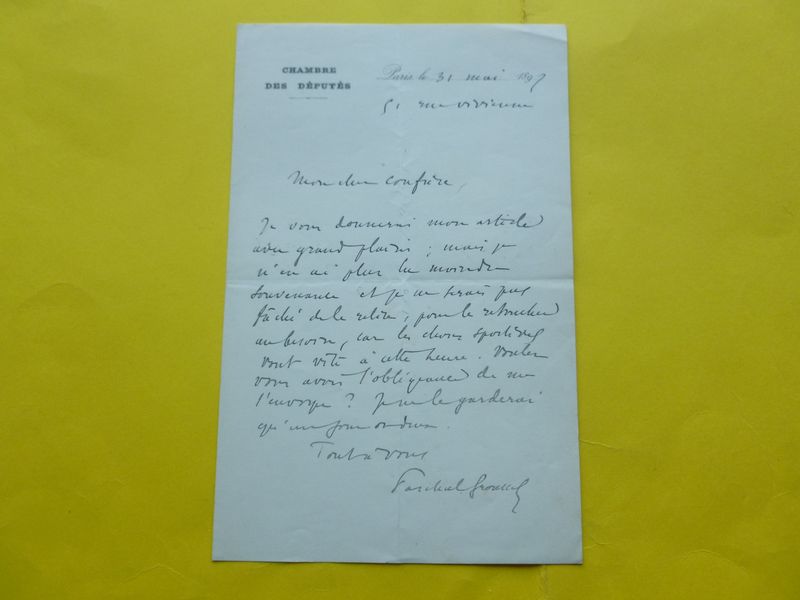 CHAMBRE
DES DÉPUTÉS
Paris, le 31 mai 1897
51 rue vivienne
Mon cher confrère,
Je vous donnerai mon article
avec grand plaisir ; mais je
n'en ai plus la moindre
souvenance et je ne serais pas
fâché de le relire, pour le retoucher
au besoin, car les choses sportives
vont vite à cette heure. Voulez
vous avoir l'obligeance de me
l'envoyer ? Je ne le garderai
qu'un jour ou deux.
Tout à vous
Paschal Grousset